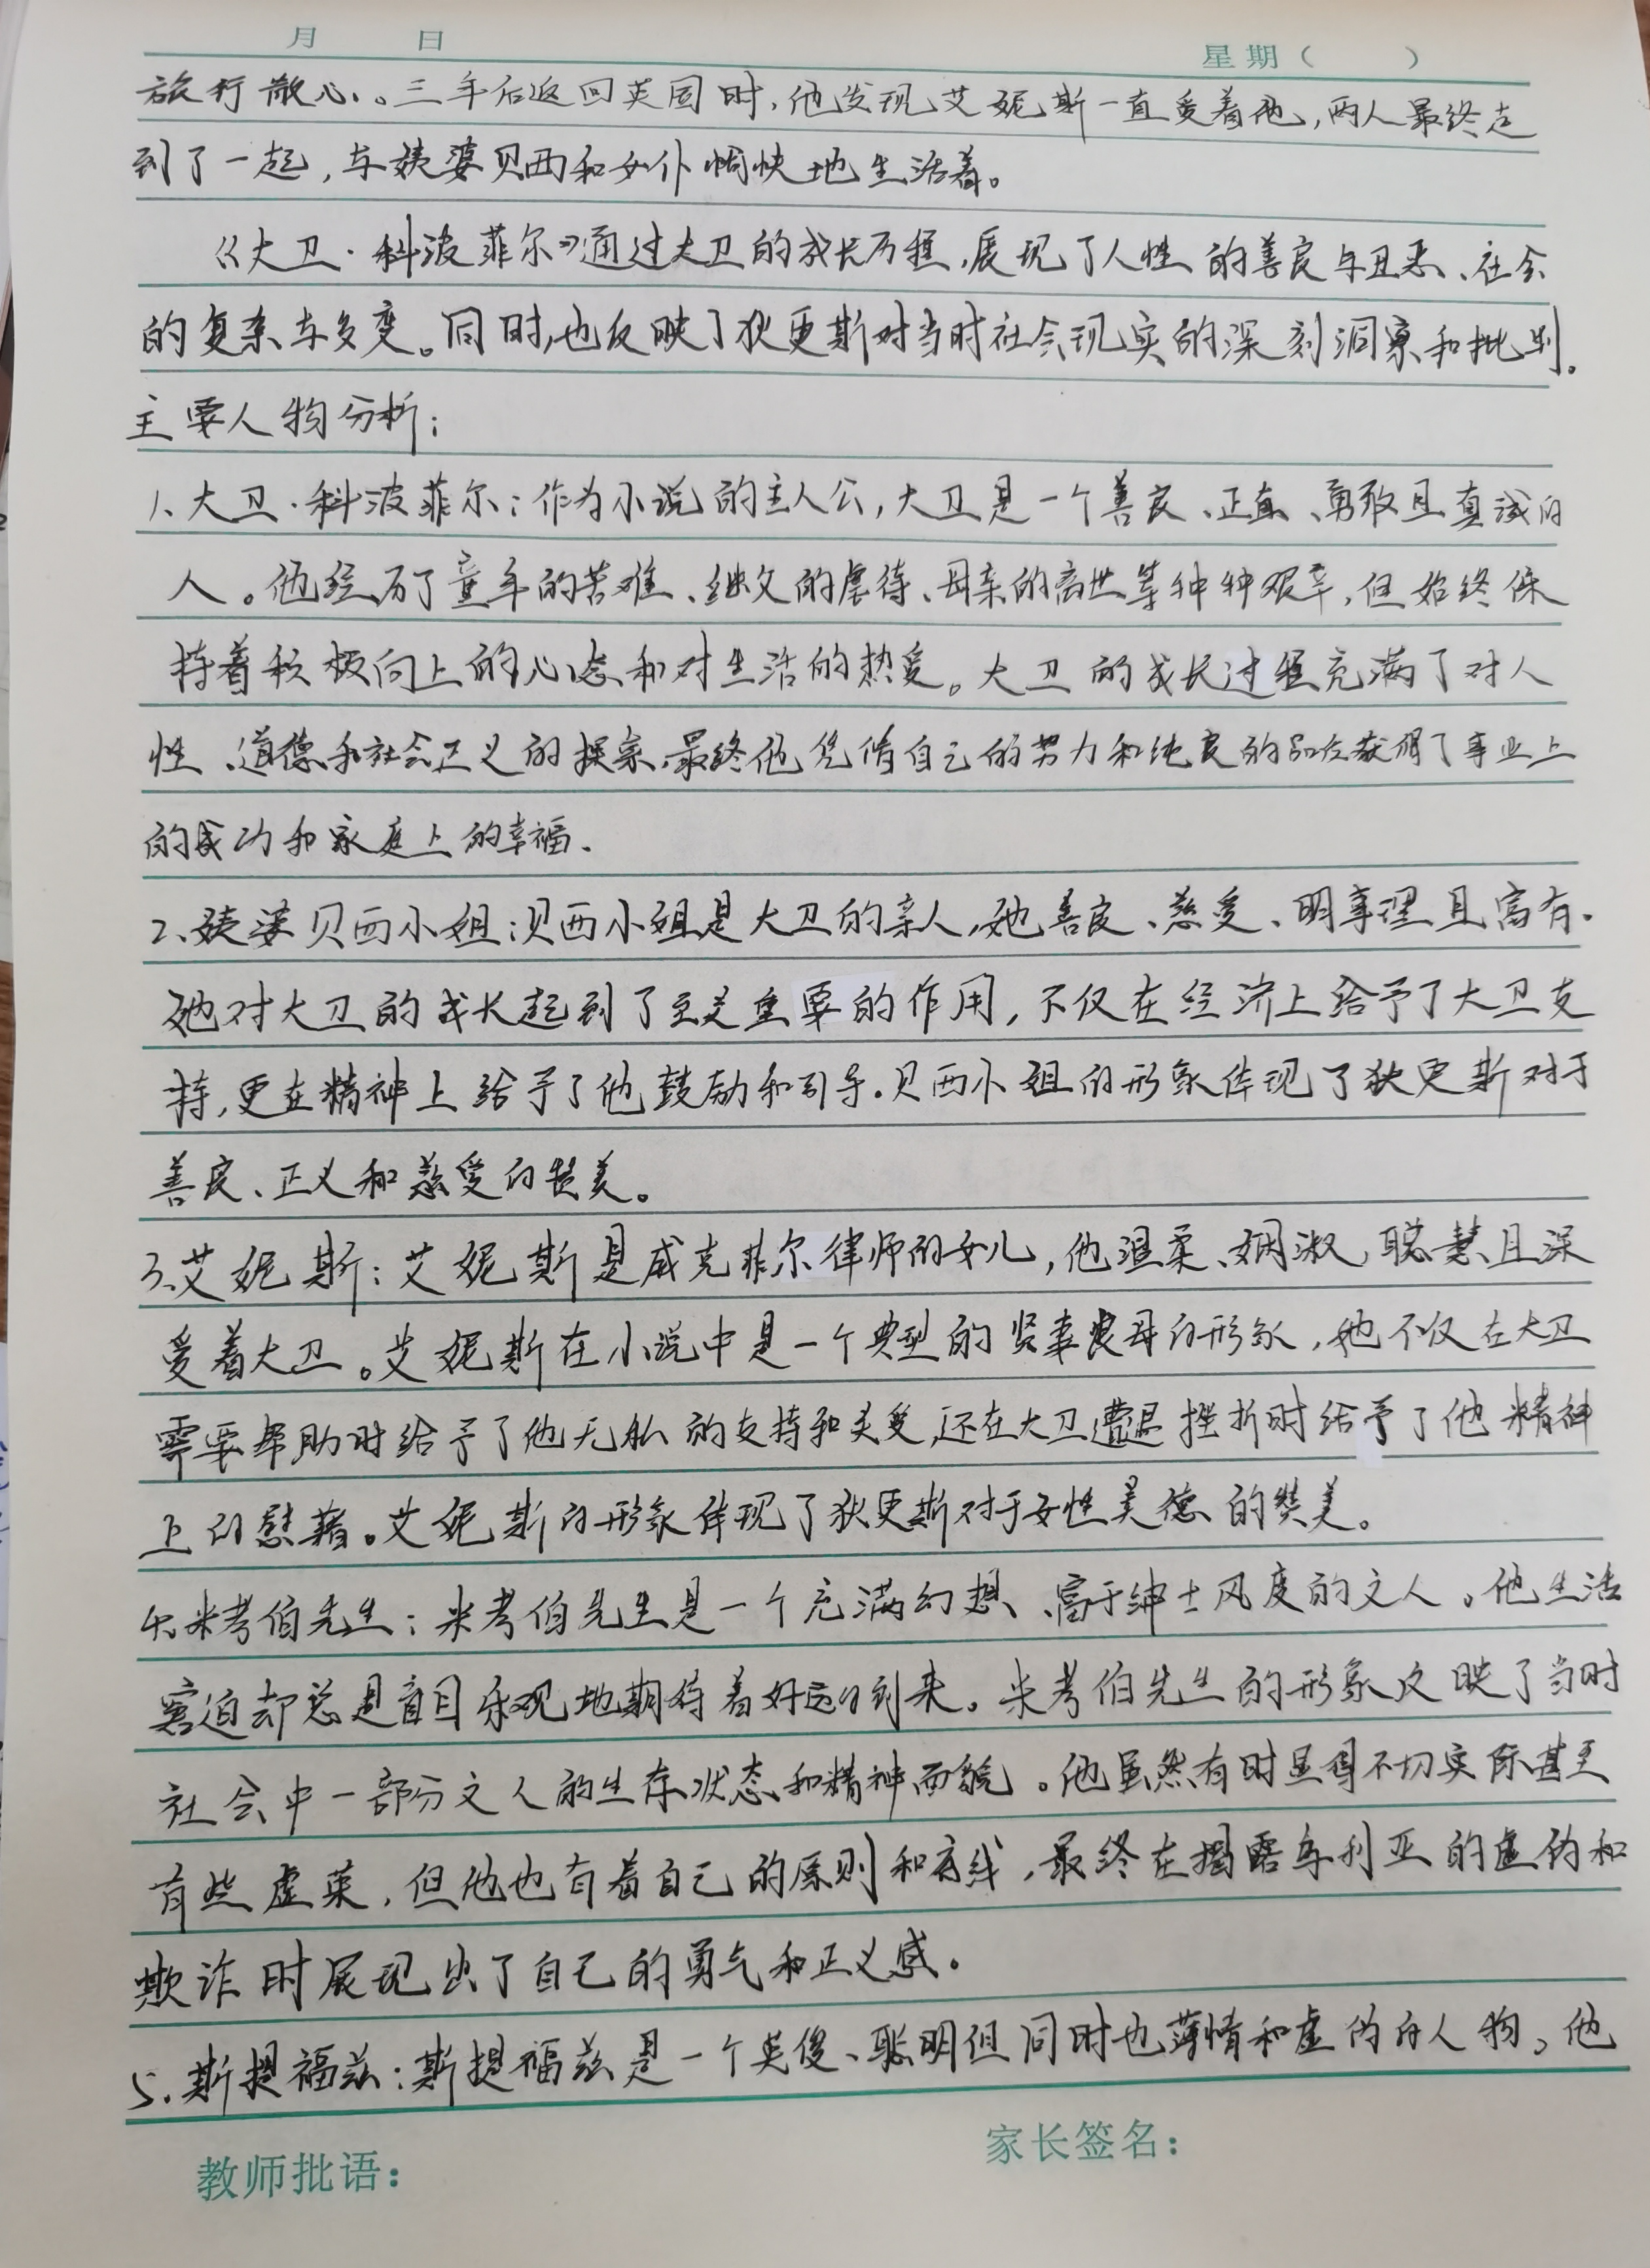 月 日 星期( )
旅行散心、。三年后返回英国时,他发现艾妮斯一直爱着他,两人最终走
到了一起,与姨婆贝西和女仆愉快地生活着。
《大卫·科波菲尔》通过大卫的成长历程,展现了人性的善良与丑恶、社会
的复杂与多变。同时,也反映了狄更斯对当时社会现实的深刻洞察和批判。
主要人物分析:
1、大卫·科波菲尔:作为小说的主人公,大卫是一个善良、正直、勇敢且真诚的
人。他经历了童年的苦难、继父的虐待、母亲的离世等种种艰辛,但始终保
持着积极向上的心态和对生活的热爱。大卫的成长过程充满了对人
性、道德和社会正义的探索,最终他凭借自己的努力和纯良的品质获得了事业上
的成功和家庭上的幸福.
2、姨婆贝西小姐:贝西小姐是大卫的亲人,她善良、慈爱、明事理且富有.
她对大卫的成长起到了至关重要的作用,不仅在经济上给予了大卫支
持,更在精神上给予了他鼓励和引导.贝西小姐的形象体现了狄更斯对于
善良、正义和慈爱的赞美。
3、艾妮斯:艾妮斯是威克菲尔律师的女儿,他温柔、娴淑,聪慧且深
爱着大卫。艾妮斯在小说中是一个典型的贤妻良母的形象,她不仅在大卫
需要帮助时给予了他无私的支持和关爱,还在大卫遭遇挫折时给予了他精神
上的慰藉。艾妮斯的形象体现了狄更斯对于女性美德的赞美。
4、米考伯先生:米考伯先生是一个充满幻想、富于绅士风度的文人。他生活
窘迫却总是盲目乐观地期待着好运的到来。米考伯先生的形象反映了当时
社会中一部分文人的生存状态和精神面貌。他虽然有时显得不切实际甚至
有些虚荣,但他也有着自己的原则和底线,最终在揭露乌利亚的虚伪和
欺诈时展现出了自己的勇气和正义感。
5、斯提福兹:斯提福兹是一个英俊、聪明但同时也薄情和虚伪的人物,他
教师批语: 家长签名: